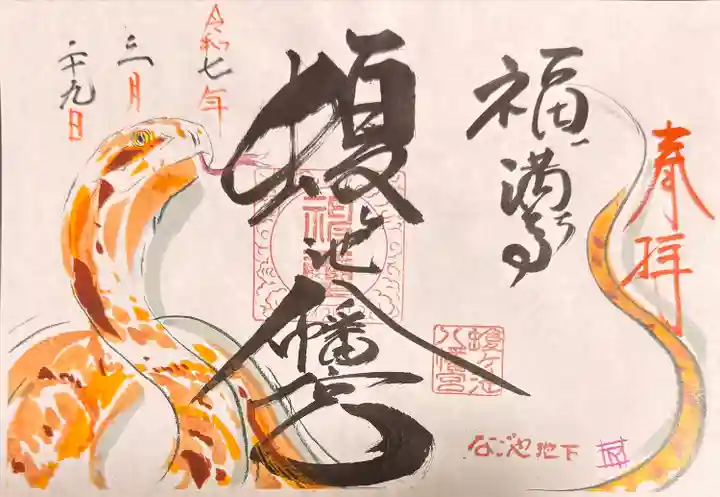 奉拝
福満
蝮ヶ池八幡宮
蝮ヶ池
八幡宮
なごや池下
令和七年
三月
二十九日